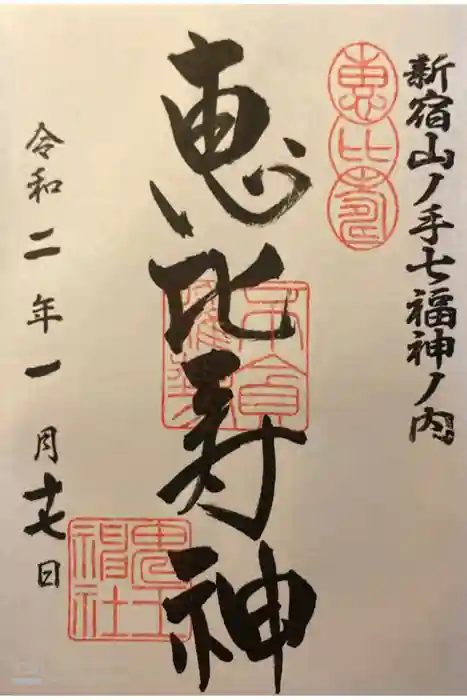 新宿山ノ手七福神ノ内
恵比寿
恵比寿神
令和二年一月十七日